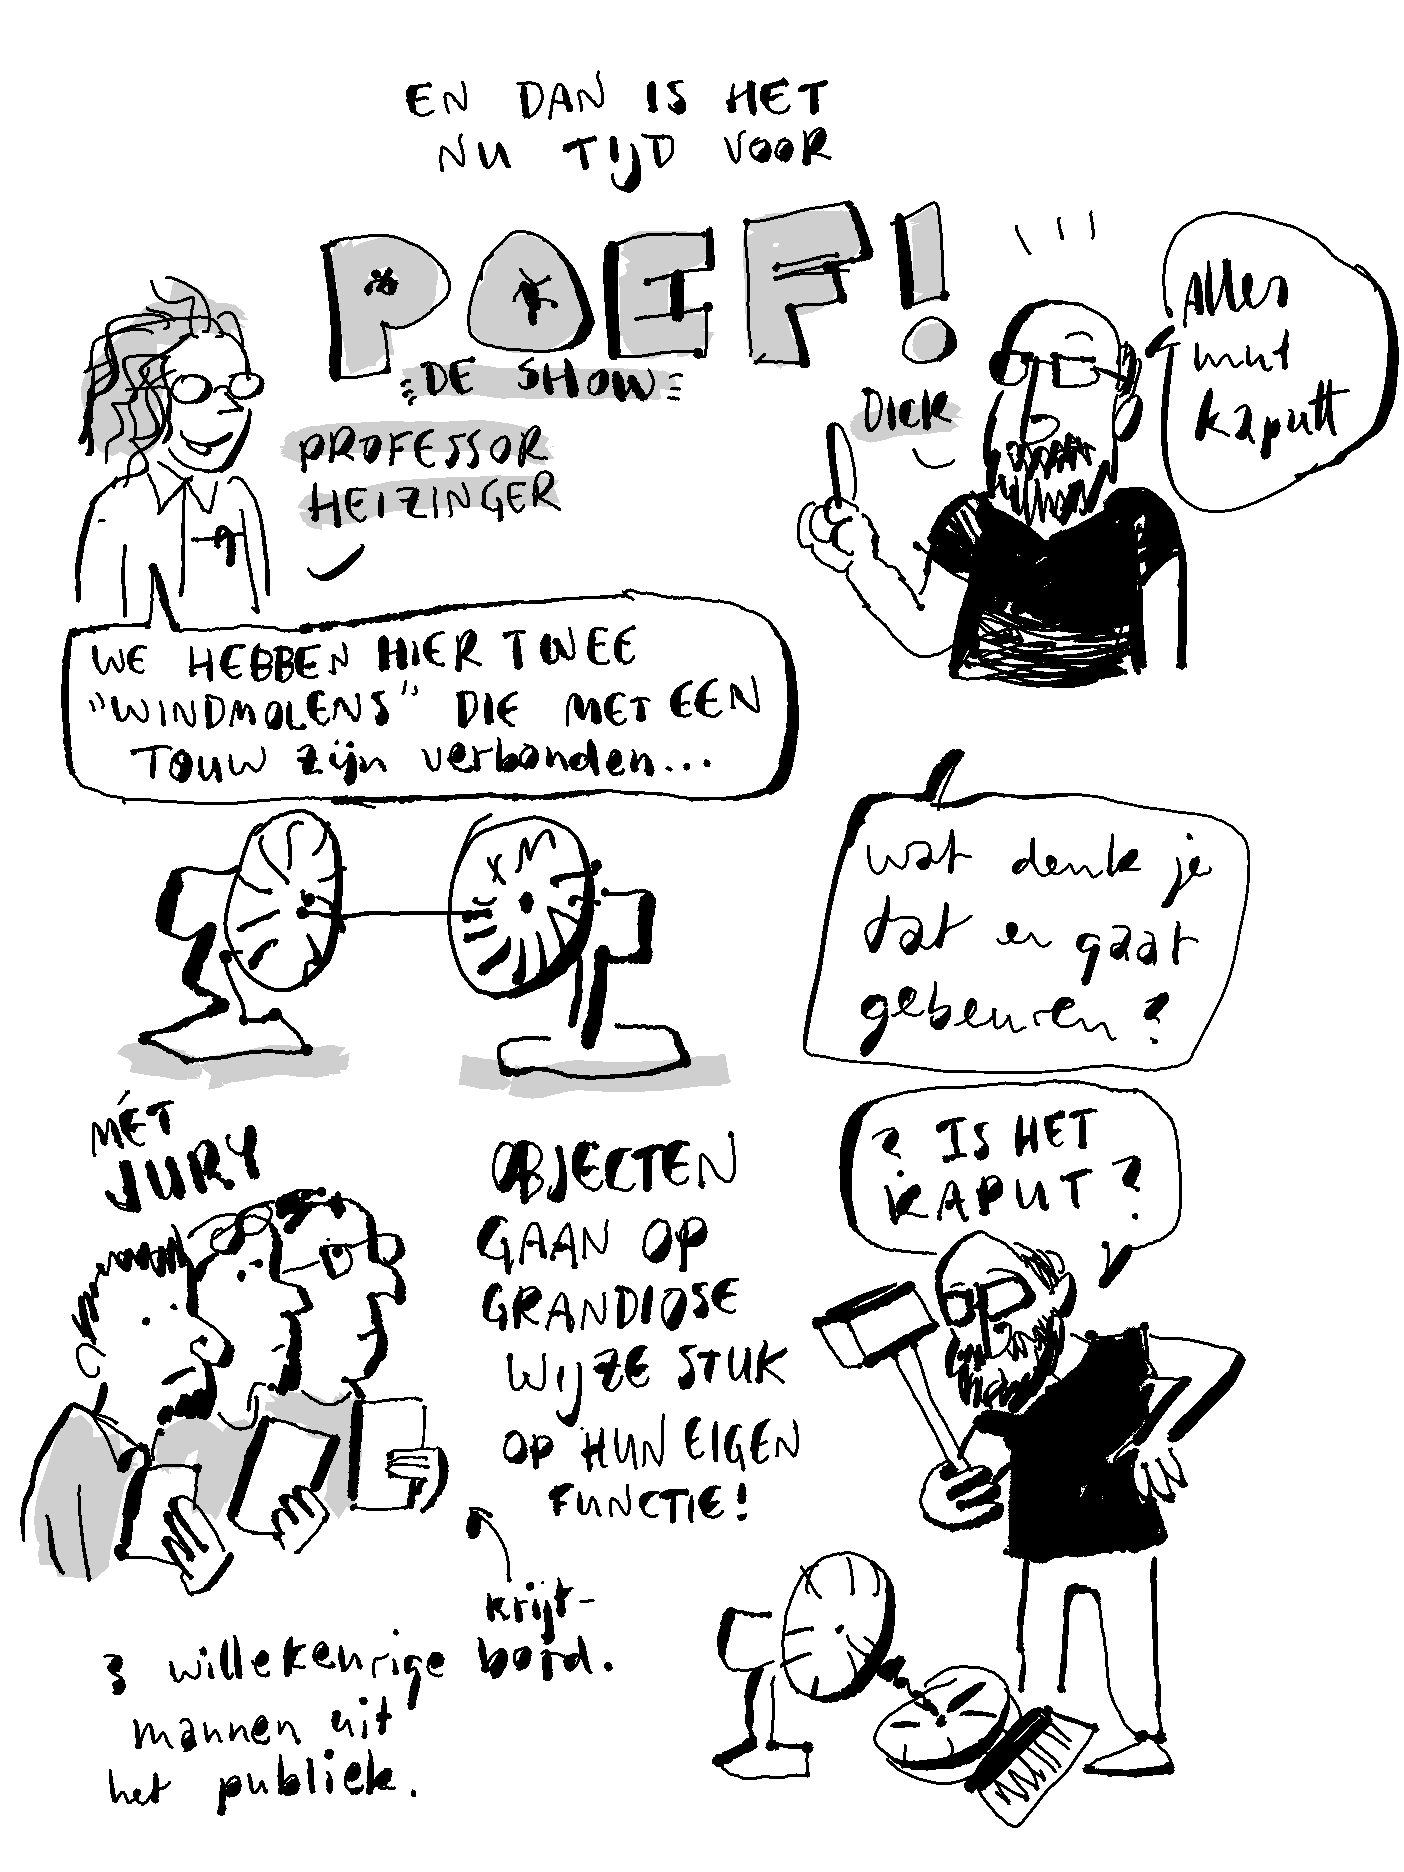 EN DAN IS HET
NU TIJD VOOR
POEF!
DE SHOW
PROFESSOR
HEIZINGER
DICK
Alles
mut
kaputt
WE HEBBEN HIER TWEE
"WINDMOLENS" DIE MET EEN
TOUW zijn verbonden...
wat denk je
dat er gaat
gebeuren?
MÉT
JURY
OBJECTEN
GAAN OP
GRANDIOSE
WIJZE STUK
OP HUN EIGEN
FUNCTIE!
? IS HET
KAPUT?
krijt-
bord.
3 willekeurige
mannen uit
het publiek.